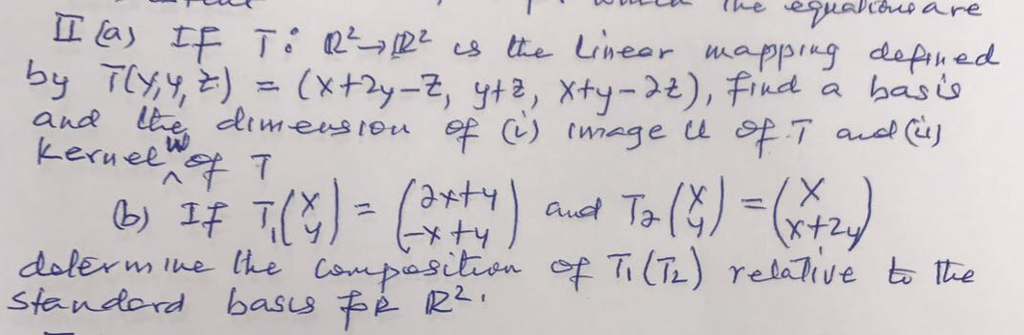 which the equations are
II (a) If T: ℝ²→ℝ² is the linear mapping defined
by T(y,y,z) = (x+2y-z, y+z, x+y-2z), find a basis
and the dimension of (i) image U of T and (ii)
Kernel W of T
(b) If T₁(x y) = (2x+y -x+y) and T₂(x y) = (x x+2y)
determine the composition of T₁(T₂) relative to the
standard basis for ℝ².